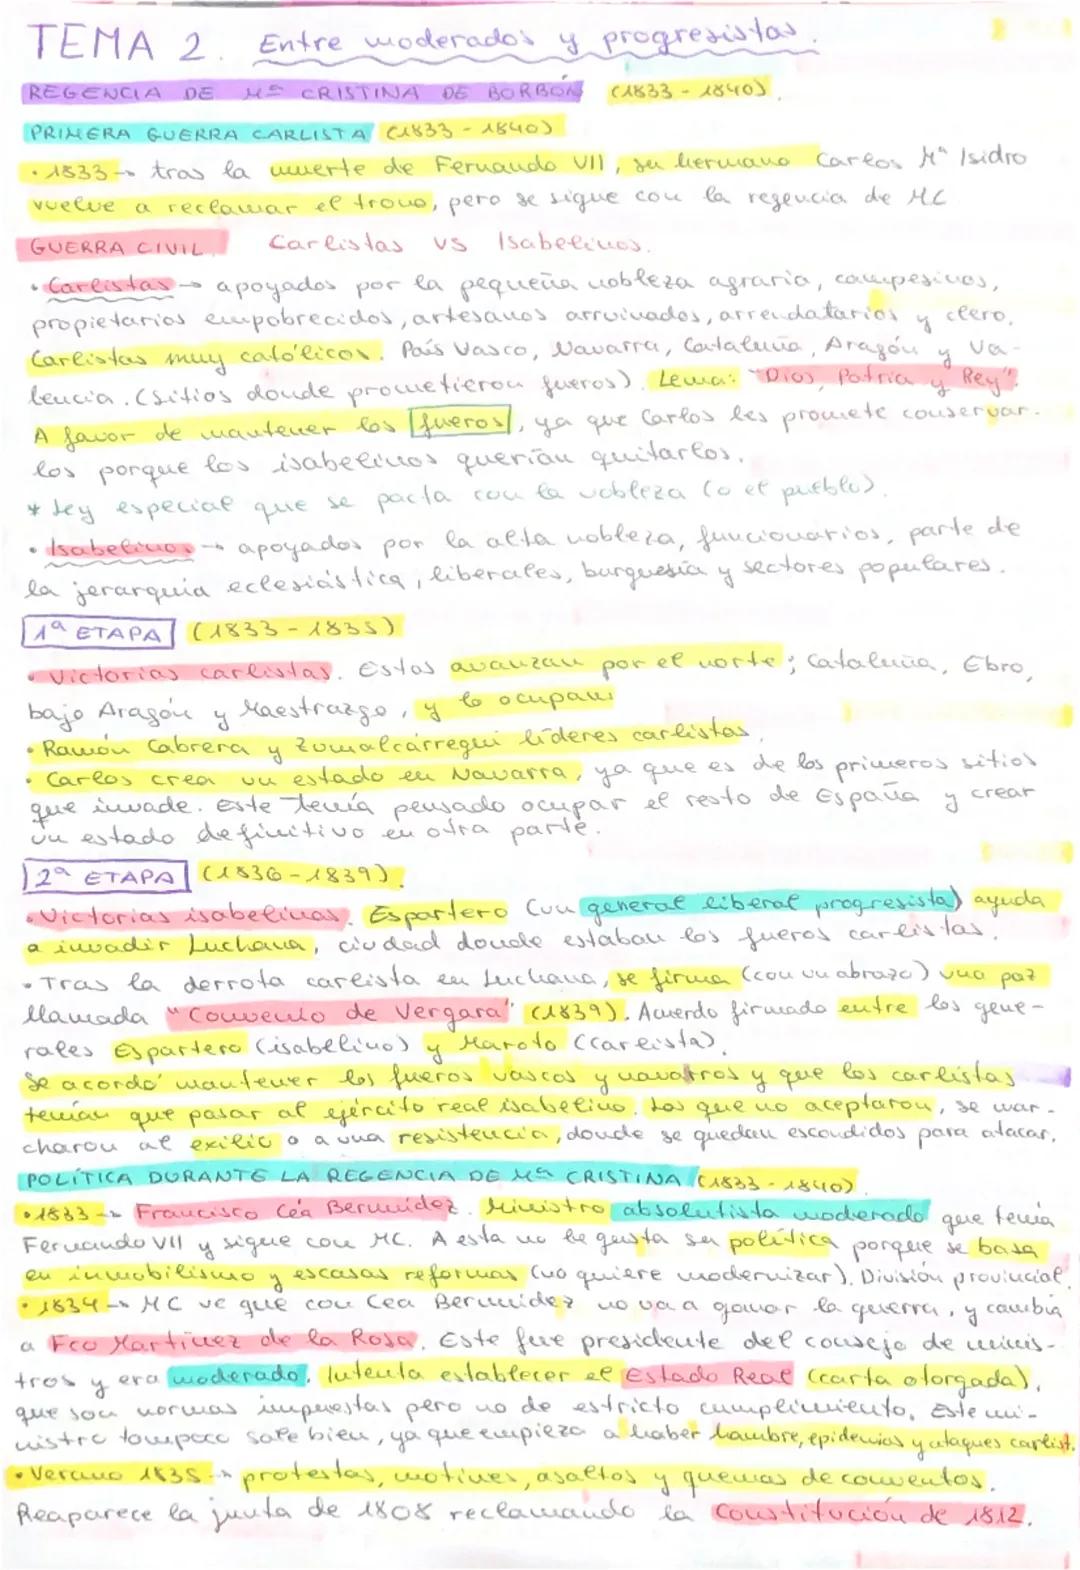 TEMA 2. Entre moderados y progresistas.
REGENCIA DE Mª CRISTINA DE BORBÓN (1833 - 1840).
PRIMERA GUERRA CARLISTA (1833 - 1840)
• 1833 → tras la muerte de Fernando VII, su hermano Carlos Mª Isidro
vuelve a reclamar el trono, pero se sigue con la regencia de MC
GUERRA CIVIL. Carlistas vs Isabelinos.
• Carlistas → apoyados por la pequeña nobleza agraria, campesinos,
propietarios empobrecidos, artesanos arruinados, arrendatarios y clero.
Carlistas muy católicos. País Vasco, Navarra, Cataluña, Aragón y Va-
lencia. (Sitios donde prometieron fueros). Lema: "Dios, Patria y Rey".
A favor de mantener los fueros, ya que Carlos les promete conservar-
los porque los isabelinos querían quitarlos.
* Ley especial que se pacta con la nobleza (o el pueblo).
• Isabelinos → apoyados por la alta nobleza, funcionarios, parte de
la jerarquía eclesiástica, liberales, burguesía y sectores populares.
1ª ETAPA (1833 - 1835)
• Victorias carlistas. Estos avanzan por el norte; Cataluña, Ebro,
bajo Aragón y Maestrazgo, y lo ocupan
• Ramón Cabrera y Zumalcárregui líderes carlistas.
• Carlos crea un estado en Navarra, ya que es de los primeros sitios
que invade. Este tenía pensado ocupar el resto de España y crear
un estado definitivo en otra parte.
2ª ETAPA (1836 - 1839).
• Victorias isabelinas. Espartero (un general liberal progresista) ayuda
a invadir Luchana, ciudad donde estaban los fueros carlistas.
• Tras la derrota carlista en Luchana, se firma (con un abrazo) una paz
llamada "Convenio de Vergara" (1839). Acuerdo firmado entre los gene-
rales Espartero (isabelino) y Maroto (carlista).
Se acordó mantener los fueros vascos y navarros y que los carlistas
tenían que pasar al ejército real isabelino. Los que no aceptaron, se mar-
charon al exilio o a una resistencia, donde se quedan escondidos para atacar.
POLÍTICA DURANTE LA REGENCIA DE Mª CRISTINA (1833 - 1840)
• 1833 → Francisco Cea Bermúdez. Ministro absolutista moderado que tenía
Fernando VII y sigue con MC. A esta no le gusta su política porque se basa
en inmobilismo y escasas reformas (no quiere modernizar). División provincial.
• 1834 → MC ve que con Cea Bermúdez no va a ganar la guerra, y cambia
a Fco Martínez de la Rosa. Este fue presidente del consejo de minis-
tros y era moderado. Intenta establecer el Estado Real (carta otorgada),
que son normas impuestas pero no de estricto cumplimiento. Este mi-
nistro tampoco sale bien, ya que empieza a haber hambre, epidemias y ataques carlist.
• Verano 1835 → protestas, motines, asaltos y quemas de conventos.
Reaparece la junta de 1808 reclamando la Constitución de 1812.